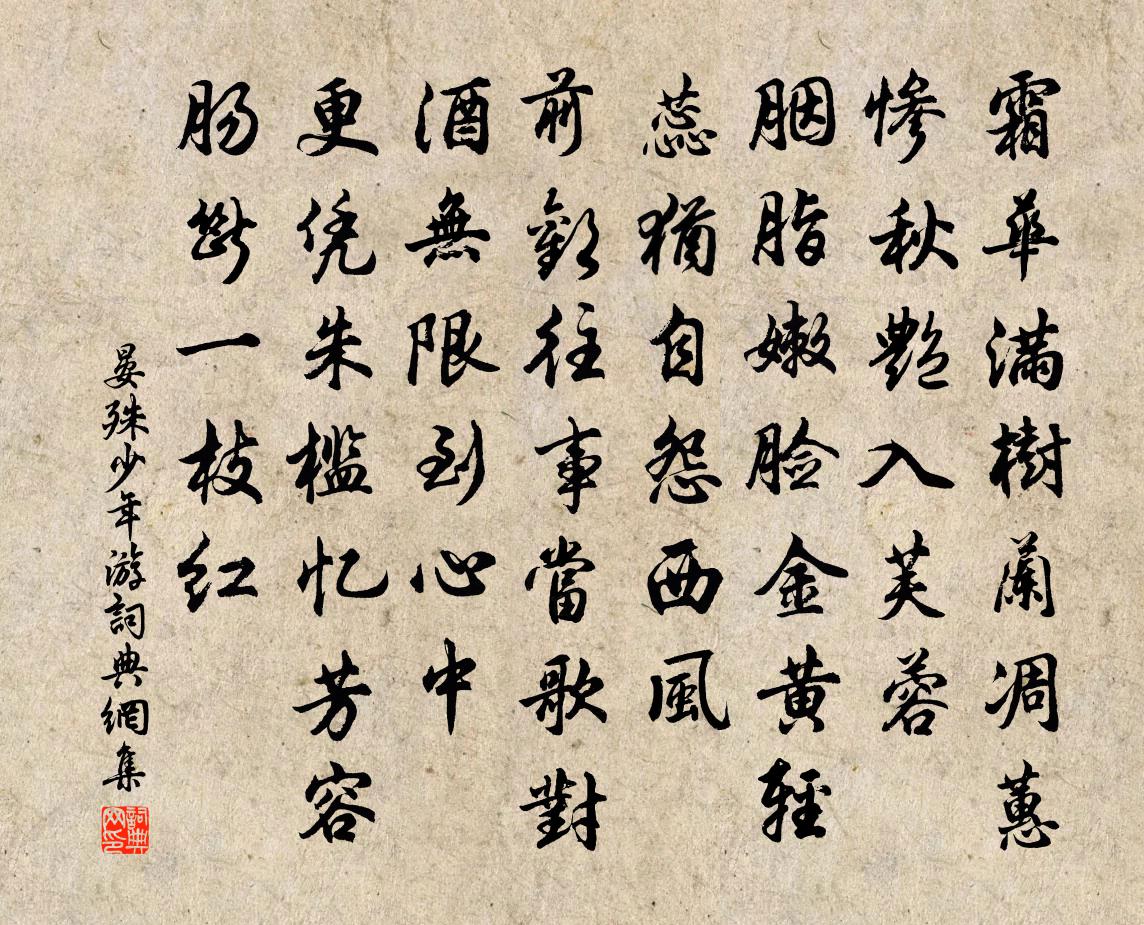 霜華滿樹蘭凋蕙
慘秋艷入芙蓉
胭脂嫩臉金黄輕
蕊猶自怨西風
前歡往事當歌對
酒無限到心中
更凭朱檻忆芳容
肠斷一枝红
晏殊少年游詞典網集
詞典網印